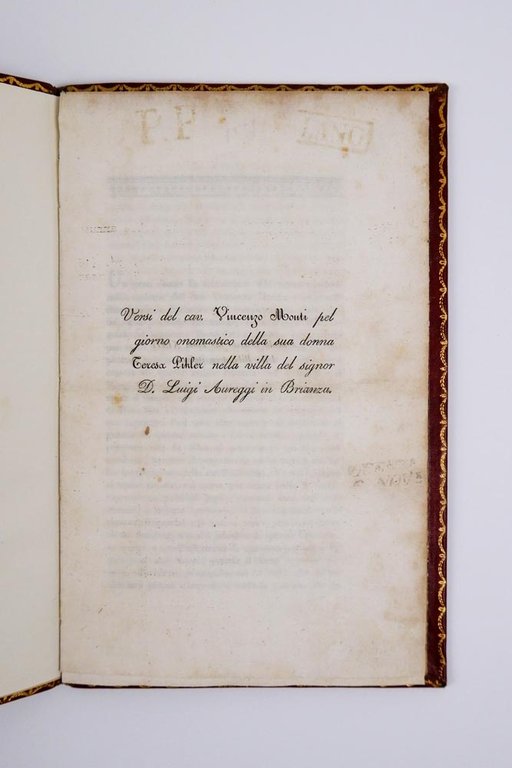 P. P.
Versi del cav. Vincenzo Monti pel
giorno onomastico della sua donna
Teresa Pikler nella villa del signor
D. Luigi Aureggi in Brianza.